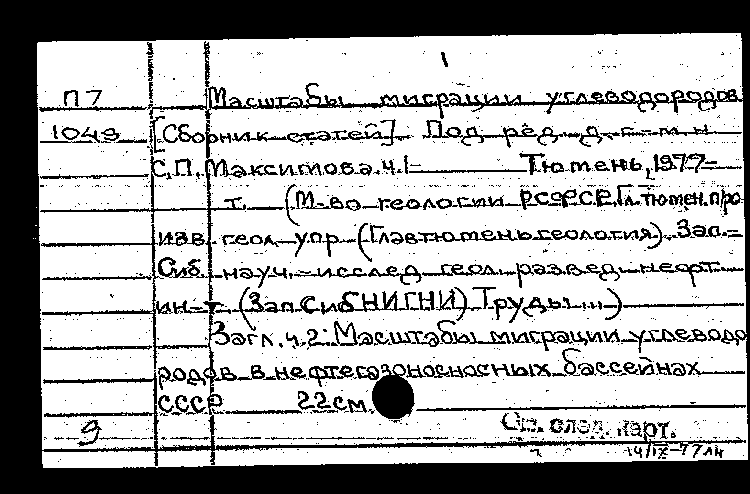 П7 Масштабы миграции углеводородов
1049 [Сборник статей]. Под ред. д. г.-м. н.
С.П. Максимова. ч.1- Тюмень, 1977-
т. (М-во геологии РСФСР. Гл. тюмен. про
изв. геол. упр (Главтюменьгеология). Зап.-
Сиб. науч.-исслед. геол. развед. нефт.
ин-т. (ЗапСибНИГНИ) Труды ... )
Загл. ч.2: Масштабы миграции углеводо
родов в нефтегазоносносных бассейнах
СССР 22см
9 См. след. карт.
14/IX-77